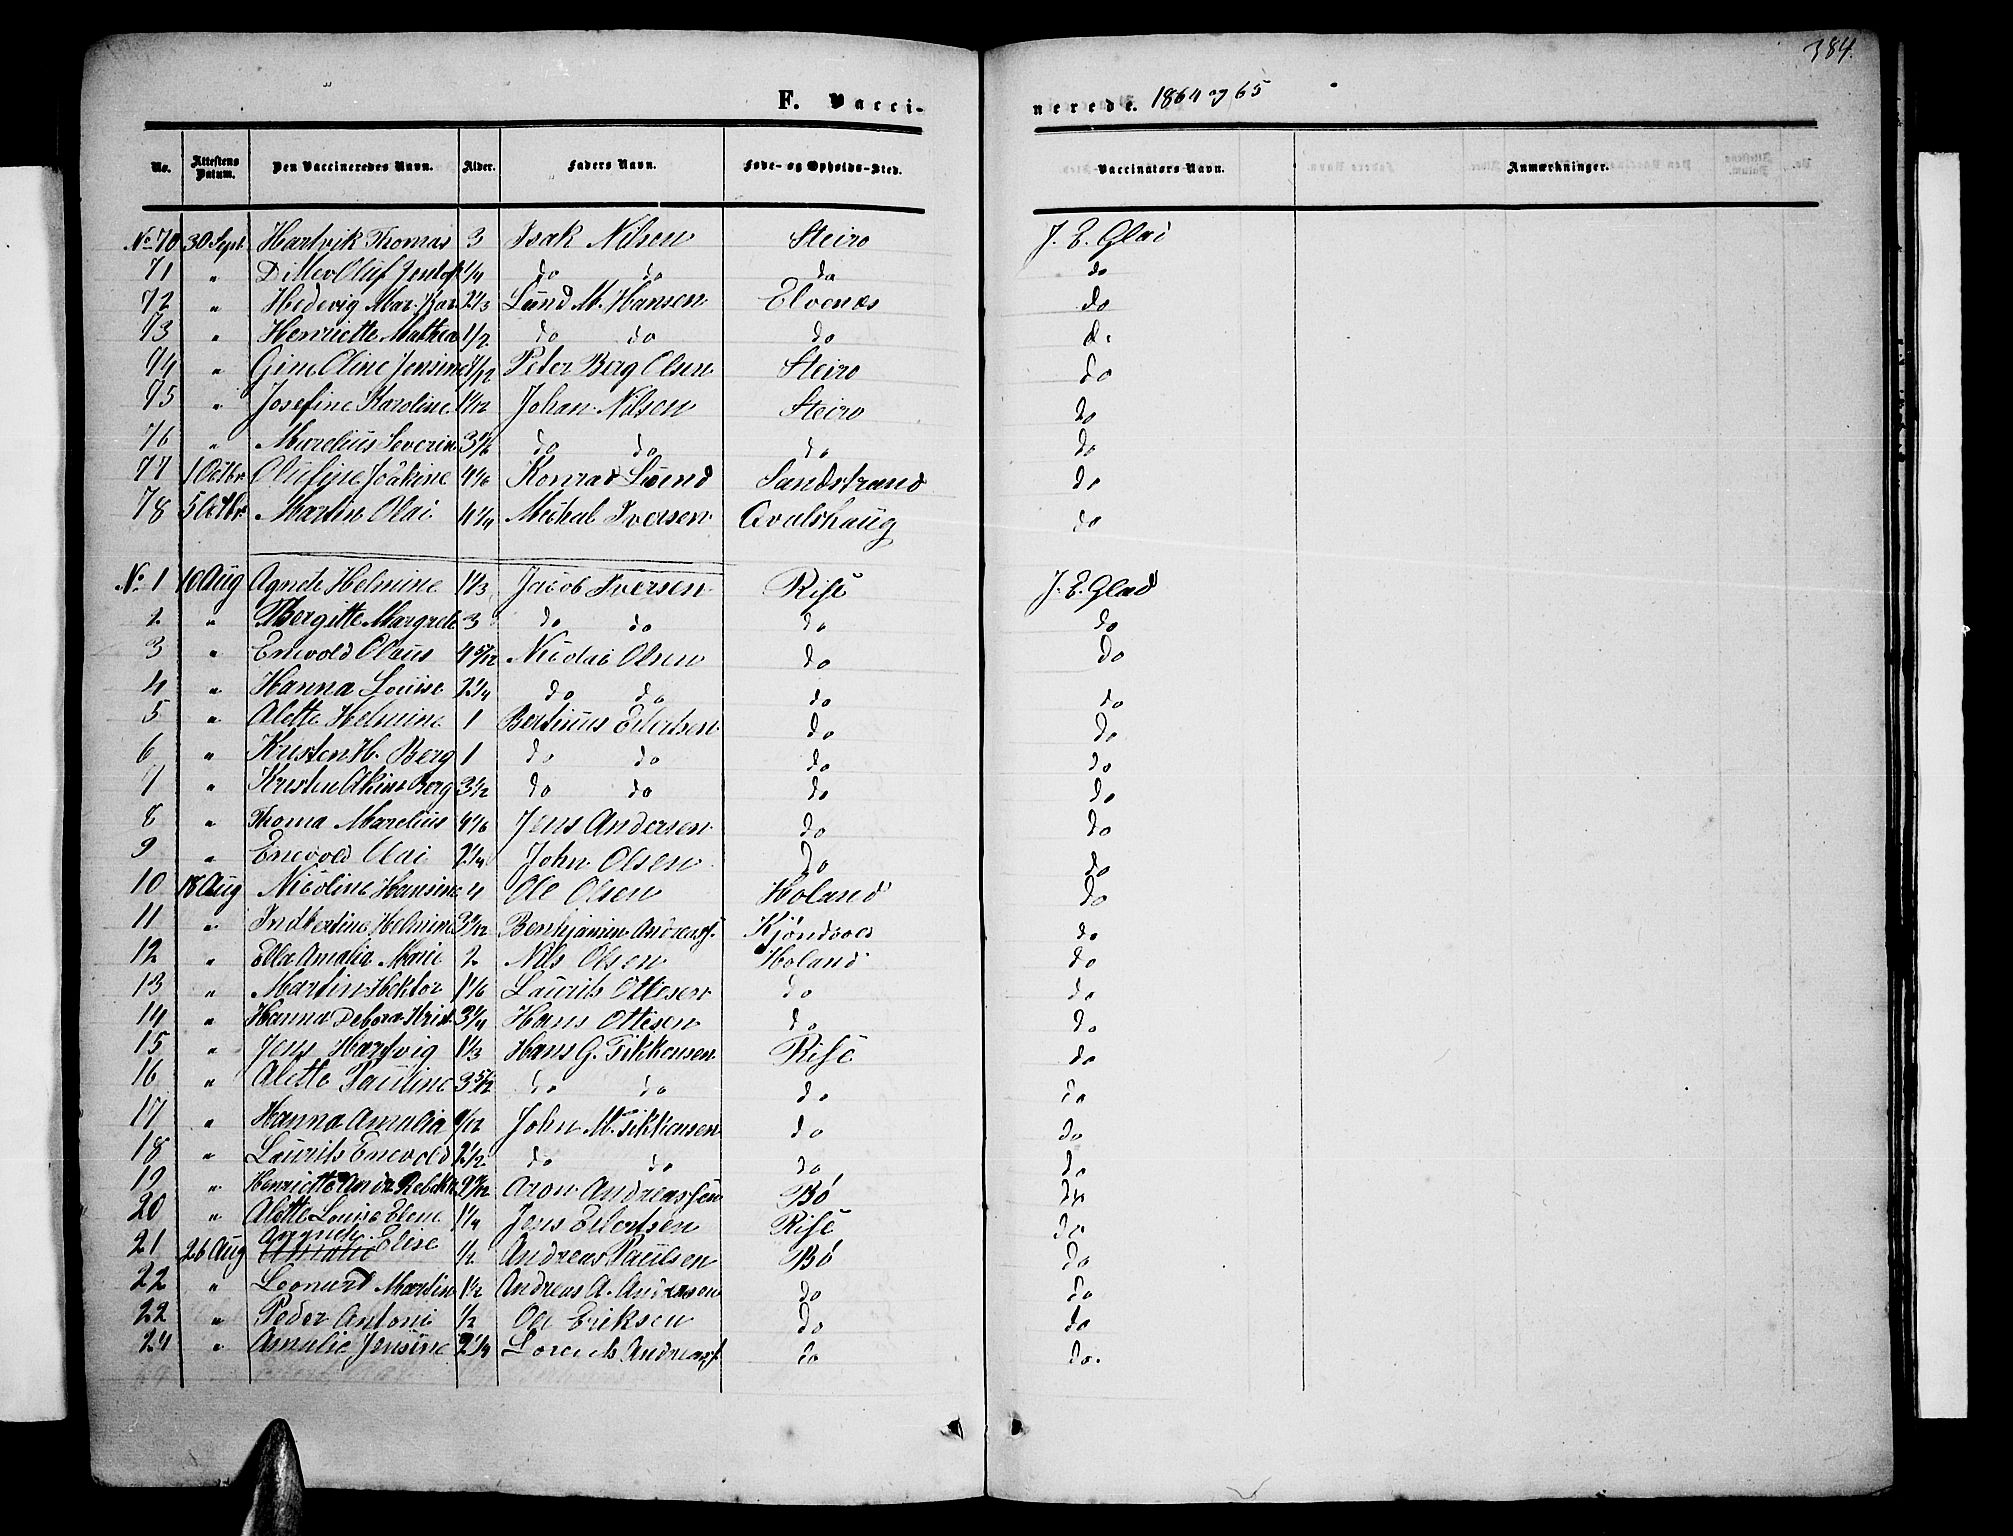 384.
F. Vaccinerede. 1864 og 65
No. Attestens Datum. Den Vaccineredes Navn. Alder. Faders Navn. Føde- og Opholds-Sted. Vaccinators-Navn. Anmærkninger.
No 70 30 Sept. Hartvik Thomas 3 Isak Nilsen Steiro J. E. Glad
71 " Ditlev Oluf 1/4 do do do do
72 " Hedevig Mar. Kar. 2 1/3 Lund M. Hansen Elvenes do
73 " Henriette Mathea 1/2 do do do do
74 " Gine Oline Jensine Peter Berg Olsen Steiro do
75 " Josefine Karoline Johan Nilsen Steiro do
76 " Marelius Severin 3 1/6 do do do do
77 1 Octbr. Olufine Joakine 4 1/6 Konrad Svend Sandstrand do
78 5 Octbr. Martin Olai 4 1/4 Michal Iversen Avalshaug do
No. 1 10 Aug Agnete Helmine 1 1/3 Jacob Iversen Risé J. E. Glad
2 " Bergitte Margrete 3 do do do do
3 " Enevold Olaus 4 5/12 Nicolai Olsen do do
4 " Hanna Louise 2 1/4 do do do do
5 " Alette Helmine 1 Bertinus Eilertsen do do
6 " Kristen H. Berg 1 do do do do
7 " Kristen Akine Berg 3 1/2 do do do do
8 " Thoma Marelius 4 1/6 Jens Andersen do do
9 " Enevold Olai 2 1/4 John Olsen do do
10 18 Aug Nicoline Hansine 4 Ole Olsen Holand do
11 " Indbertine Helmine Benhjamin Andreass. Kjøndsoes do
12 " Ella Amalia Marie 2 Nils Olsen Holand do
13 " Martin Hektor 1 1/6 Laurits Ottesen do do
14 " Hanna Debora Krist. 3 1/4 Hans Ottesen do do
15 " Jens Hartvig 1 1/3 Hans G. Fikkensen Risé do
16 " Alette Pauline 3 5/12 do do do do
17 " Hanna Amalia 9/12 John M. Fikkensen do do
18 " Laurits Enevold 2 1/2 do do do do
19 " Henriette Anda Rebekka Aron Andreassen Bø do
20 " Alette Louise Elene 1 1/4 Jens Eilertsen Risé do
21 26 Aug Agnete Elise 1/2 Andreas Paulsen Bø do
22 " Leonard Martin 1 1/2 Andreas A. Andresen do do
22 " Peder Antoni 1/2 Ole Eriksen do do
24 " Amalie Jensine 2 1/4 Lorents Andreass. do do.